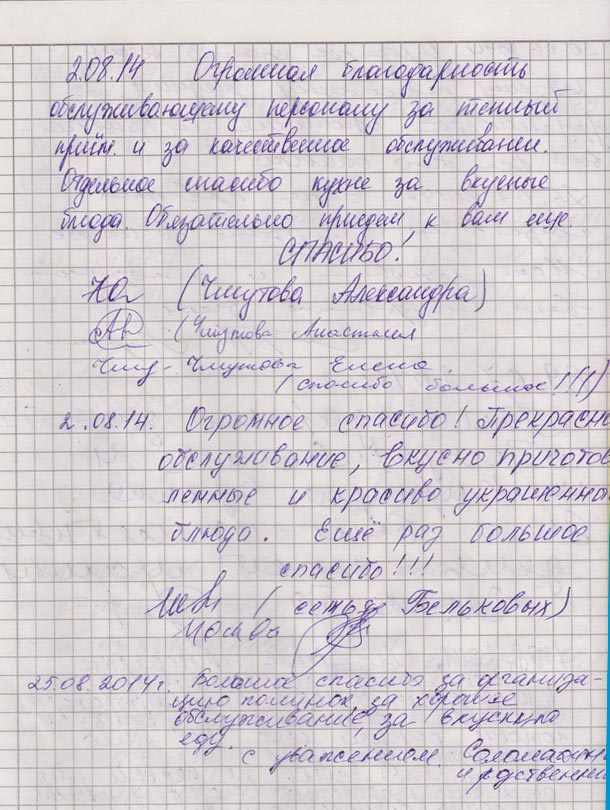 2.08.14 Огромная благодарность
обслуживающему персоналу за теплый
приём и за качественное обслуживании.
Отдельное спасибо кухне за вкусные
блюда. Обязательно приедем к вам еще.
СПАСИБО!
(Чмутова Александра)
(Чмутова Анастасия
Чму- Чмутова Елена
(спасибо большое!!!)
2.08.14. Огромное спасибо! Прекрасно
обслуживание, вкусно приготов
ленные и красиво украшенно
блюда. Ещё раз большое
спасибо!!!
(семья Бельковых)
Москва
25.08.2014г. Большое спасибо за организа-
цию поминок, за хорошее
обслуживание, за вкусную
еду.
с уважением.
и родственни